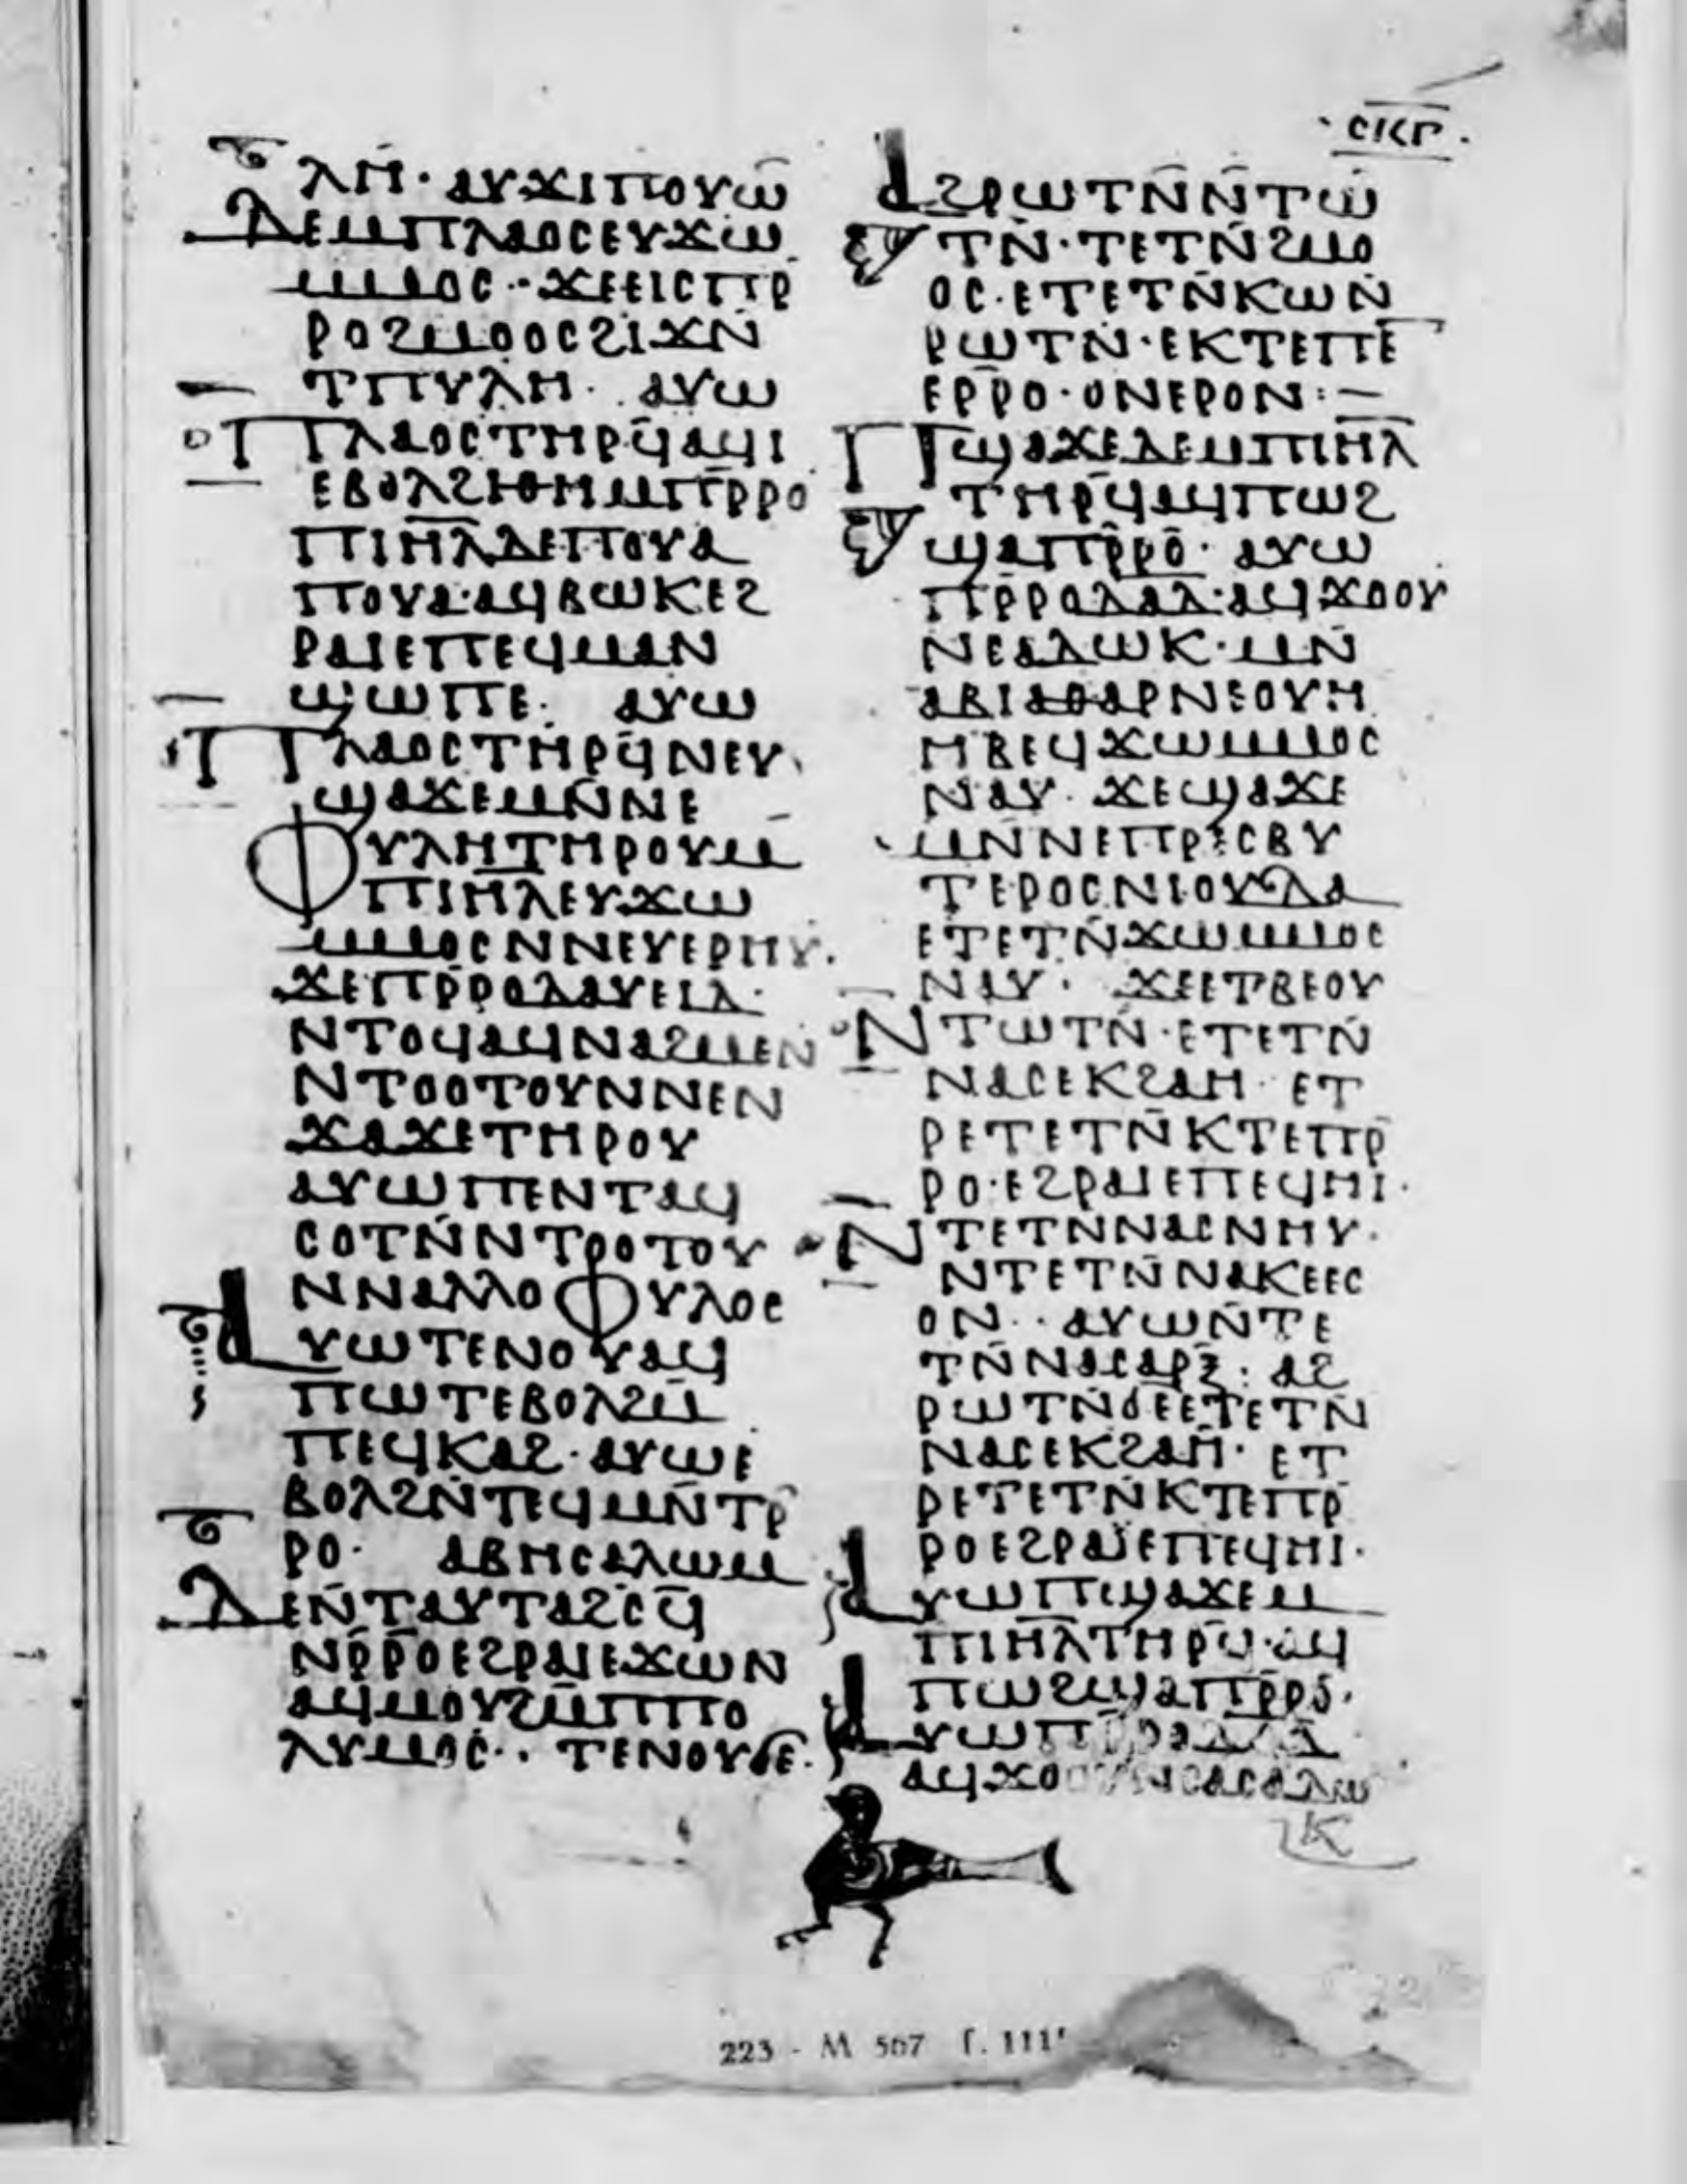 ⲥⲕⲅ
ⲗⲏ· ⲁⲩϫⲓⲡⲟⲩⲱ
ⲇⲉⲙⲡⲗⲁⲟⲥⲉⲩϫⲱ
ⲙⲙⲟⲥ·ϫⲉⲉⲓⲥⲡⲣ̄
ⲣⲟϩⲙⲟⲟⲥϩⲓϫⲛ̄
ⲧⲡⲩⲗⲏ· ⲁⲩⲱ
ⲡⲗⲁⲟⲥⲧⲏⲣϥ̄ⲁϥⲓ
ⲉⲃⲟⲗϩⲓⲑⲏⲙⲡⲣ̄ⲣⲟ
ⲡⲓⲏ̄ⲗ̄ⲇⲉⲡⲟⲩⲁ
ⲡⲟⲩⲁ·ⲁϥⲃⲱⲕⲉϩ
ⲣⲁⲓⲉⲡⲉϥⲙⲁⲛ
ϣⲱⲡⲉ· ⲁⲩⲱ
ⲡⲗⲁⲟⲥⲧⲏⲣϥ̄ⲛⲉⲩ
ϣⲁϫⲉⲙⲛ̄ⲛⲉ
ⲫⲩⲗⲏⲧⲏⲣⲟⲩⲙ̄
ⲡⲓⲏ̄ⲗ̄ⲉⲩϫⲱ
ⲙⲙⲟⲥⲛⲛⲉⲩⲉⲣⲏⲩ·
ϫⲉⲡⲣ̄ⲣⲟⲇⲁⲩⲉⲓⲇ·
ⲛⲧⲟϥⲁϥⲛⲁϩⲙⲉⲛ
ⲛⲧⲟⲟⲧⲟⲩⲛⲛⲉⲛ
ϫⲁϫⲉⲧⲏⲣⲟⲩ
ⲁⲩⲱⲡⲉⲛⲧⲁϥ
ⲥⲟⲧⲛ̄ⲛⲧⲟⲟⲧⲟⲩ
ⲛⲛⲁⲗⲗⲟⲫⲩⲗⲟⲥ
ⲁⲩⲱⲧⲉⲛⲟⲩⲁϥ
ⲡⲱⲧⲉⲃⲟⲗϩⲙ̄
ⲡⲉϥⲕⲁϩ·ⲁⲩⲱⲉ
ⲃⲟⲗϩⲛ̄ⲧⲉϥⲙⲛ̄ⲧⲣ̄
ⲣⲟ· ⲁⲃⲏⲥⲁⲗⲱⲙ
ⲇⲉⲛ̄ⲧⲁⲩⲧⲁϩⲥϥ̄
ⲛⲣ̄ⲣⲟⲉϩⲣⲁⲓⲉϫⲱⲛ
ⲁϥⲙⲟⲩϩⲙ̄ⲡⲡⲟ
ⲗⲩⲙⲟⲥ·· ⲧⲉⲛⲟⲩϭⲉ·
ⲁϩⲣⲱⲧⲛ̄ⲛ̄ⲧⲱ
ⲧⲛ̄·ⲧⲉⲧⲛ̄ϩⲙⲟ
ⲟⲥ·ⲉⲧⲉⲧⲛ̄ⲕⲱⲛ̄
ⲣⲱⲧⲛ̄·ⲉⲕⲧⲉⲡⲉ
ⲉⲣⲣ̄ⲟ·ⲟⲛⲉⲣⲟⲛ:—
ⲡϣⲁϫⲉⲇⲉⲙⲡⲓⲏ̄ⲗ̄
ⲧⲏⲣϥ̄ⲁϥⲡⲱϩ
ϣⲁⲡⲣ̄ⲣⲟ· ⲁⲩⲱ
ⲡⲣ̄ⲣⲟⲇⲁⲇ·ⲁϥϫⲟⲟⲩ
ⲛⲥⲁⲇⲱⲕ·ⲙⲛ̄
ⲁⲃⲓⲁⲑⲁⲣⲛⲉⲟⲩⲏ
ⲏⲃⲉϥϫⲱⲙⲙⲟⲥ
ⲛⲁⲩ· ϫⲉϣⲁϫⲉ
ⲙⲛ̄ⲛⲉⲡⲣⲉⲥⲃⲩ
ⲧⲉⲣⲟⲥⲛⲓⲟⲩⲇⲁ
ⲉⲧⲉⲧⲛ̄ϫⲱⲙⲙⲟⲥ
ⲛⲁⲩ· ϫⲉⲉⲧⲃⲉⲟⲩ
ⲛⲧⲱⲧⲛ̄·ⲉⲧⲉⲧⲛ̄
ⲛⲁⲥⲉⲕϩⲁⲏ· ⲉⲧ
ⲣⲉⲧⲉⲧⲛ̄ⲕⲧⲉⲡⲣ̄
ⲣⲟ·ⲉϩⲣⲁⲓⲉⲡⲉϥⲏⲓ·
ⲛⲧⲉⲧⲛⲛⲁⲥⲛⲏⲩ·
ⲛⲧⲉⲧⲛ̄ⲛⲁⲕⲉⲉⲥ
ⲟⲛ·· ⲁⲩⲱⲛ̄ⲧⲉ
ⲧⲛ̄ⲛⲁⲥⲁⲣⲝ: ⲁϩ
ⲣⲱⲧⲛ̄ϭⲉⲉⲧⲉⲧⲛ̄
ⲛⲁⲥⲉⲕϩⲁⲏ· ⲉⲧ
ⲣⲉⲧⲉⲧⲛ̄ⲕⲧⲉⲡⲣ̄
ⲣⲟⲉϩⲣⲁⲓⲉⲡⲉϥⲏⲓ·
ⲁⲩⲱⲡϣⲁϫⲉⲙ
ⲡⲓⲏ̄ⲗ̄ⲧⲏⲣϥ̄·ⲁϥ
ⲡⲱϩϣⲁⲡⲣ̄ⲣⲟ·
ⲁⲩⲱⲡⲣ̄ⲣⲟⲇⲁⲇ
ⲁϥϫⲟⲟⲩⲛⲥⲁⲥⲁⲇⲱ
ⲕ
223 - M 567 f. 111ʳ